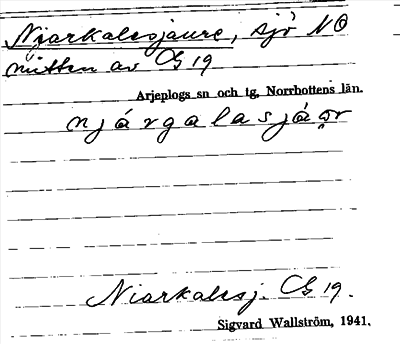 Njarkalesjaure, sjö NO
mitten av CG 19
Arjeplogs sn och tg, Norrbottens län.
njárgalasjáọr
Niarkalesj. CG 19.
Sigvard Wallström, 1941.